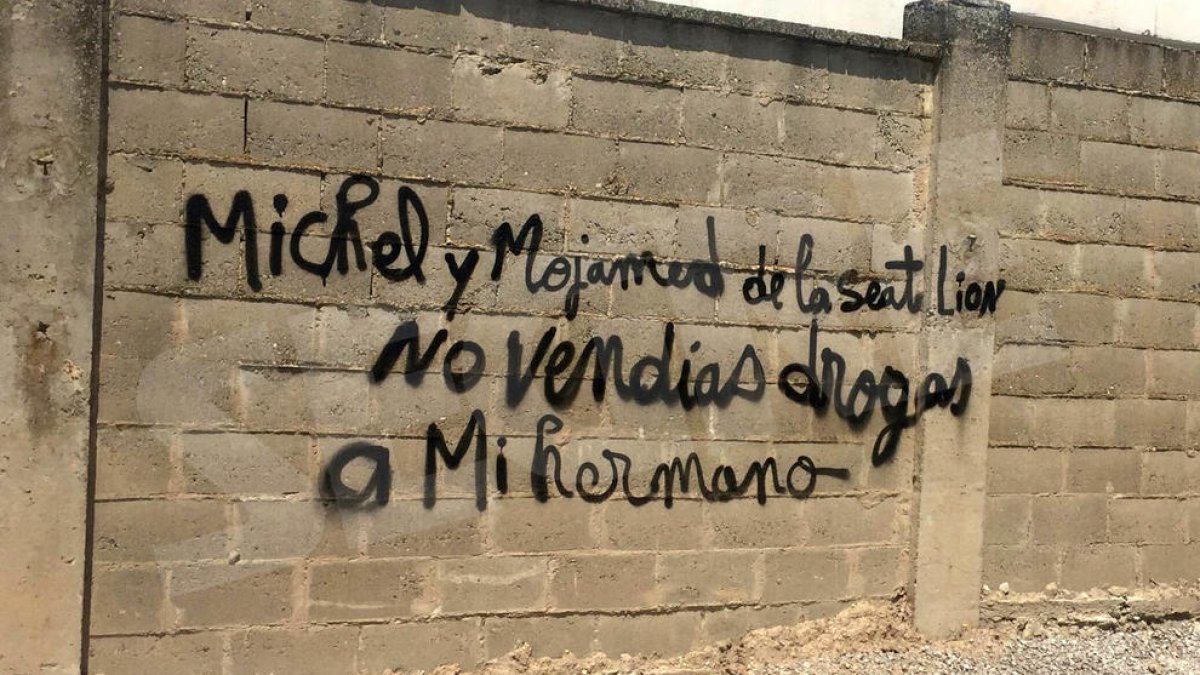 Michel y Mojamed de la seat Lion
No vendias drogas
a Mi hermano